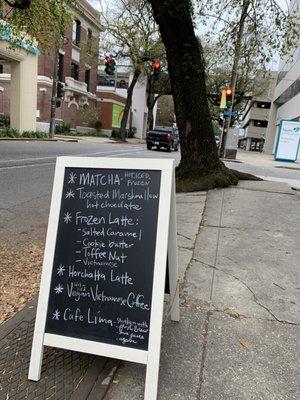 * MATCHA - HOT, ICED, FROZEN
* Toasted Marshmallow
hot chocolate
* Frozen Latte:
- Salted Caramel
- Cookie butter
- Toffee Nut
- Vietnamese
* Horchatta Latte
* Vegan Vietnamese Coffee
* Cafe Lima